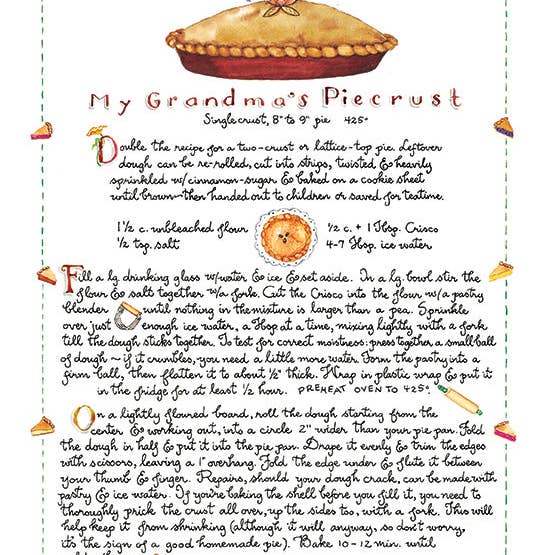 My Grandma's Piecrust
Single crust, 8" to 9" pie 425°
Double the recipe for a two-crust or lattice-top pie. Leftover
dough can be re-rolled, cut into strips, twisted & heavily
sprinkled w/cinnamon-sugar & baked on a cookie sheet
until brown—then handed out to children or saved for teatime.
1 1/2 c. unbleached flour
1/2 c. + 1 Tbsp. Crisco
1/2 tsp. salt
4-7 Tbsp. ice water
Fill a lg. drinking glass w/water & ice & set aside. In a lg. bowl stir the
flour & salt together w/a fork. Cut the Crisco into the flour w/a pastry
blender until nothing in the mixture is larger than a pea. Sprinkle
over just enough ice water, a Tbsp at a time, mixing lightly with a fork
till the dough sticks together. To test for correct moistness: press together a small ball
of dough ~ if it crumbles, you need a little more water. Form the pastry into a
firm ball, then flatten it to about 1/2" thick. Wrap in plastic wrap & put it
in the fridge for at least 1/2 hour. PREHEAT OVEN TO 425°
On a lightly floured board, roll the dough starting from the
center & working out, into a circle 2" wider than your pie pan. Fold
the dough in half & put it into the pie pan. Drape it evenly & trim the edges
with scissors, leaving a 1" overhang. Fold the edge under & flute it between
your thumb & finger. Repairs, should your dough crack, can be made with
pastry & ice water. If you're baking the shell before you fill it, you need to
thoroughly prick the crust all over, up the sides too, with a fork. This will
help keep it from shrinking (although it will anyway, so don't worry,
it's the sign of a good homemade pie). Bake 10-12 min. until